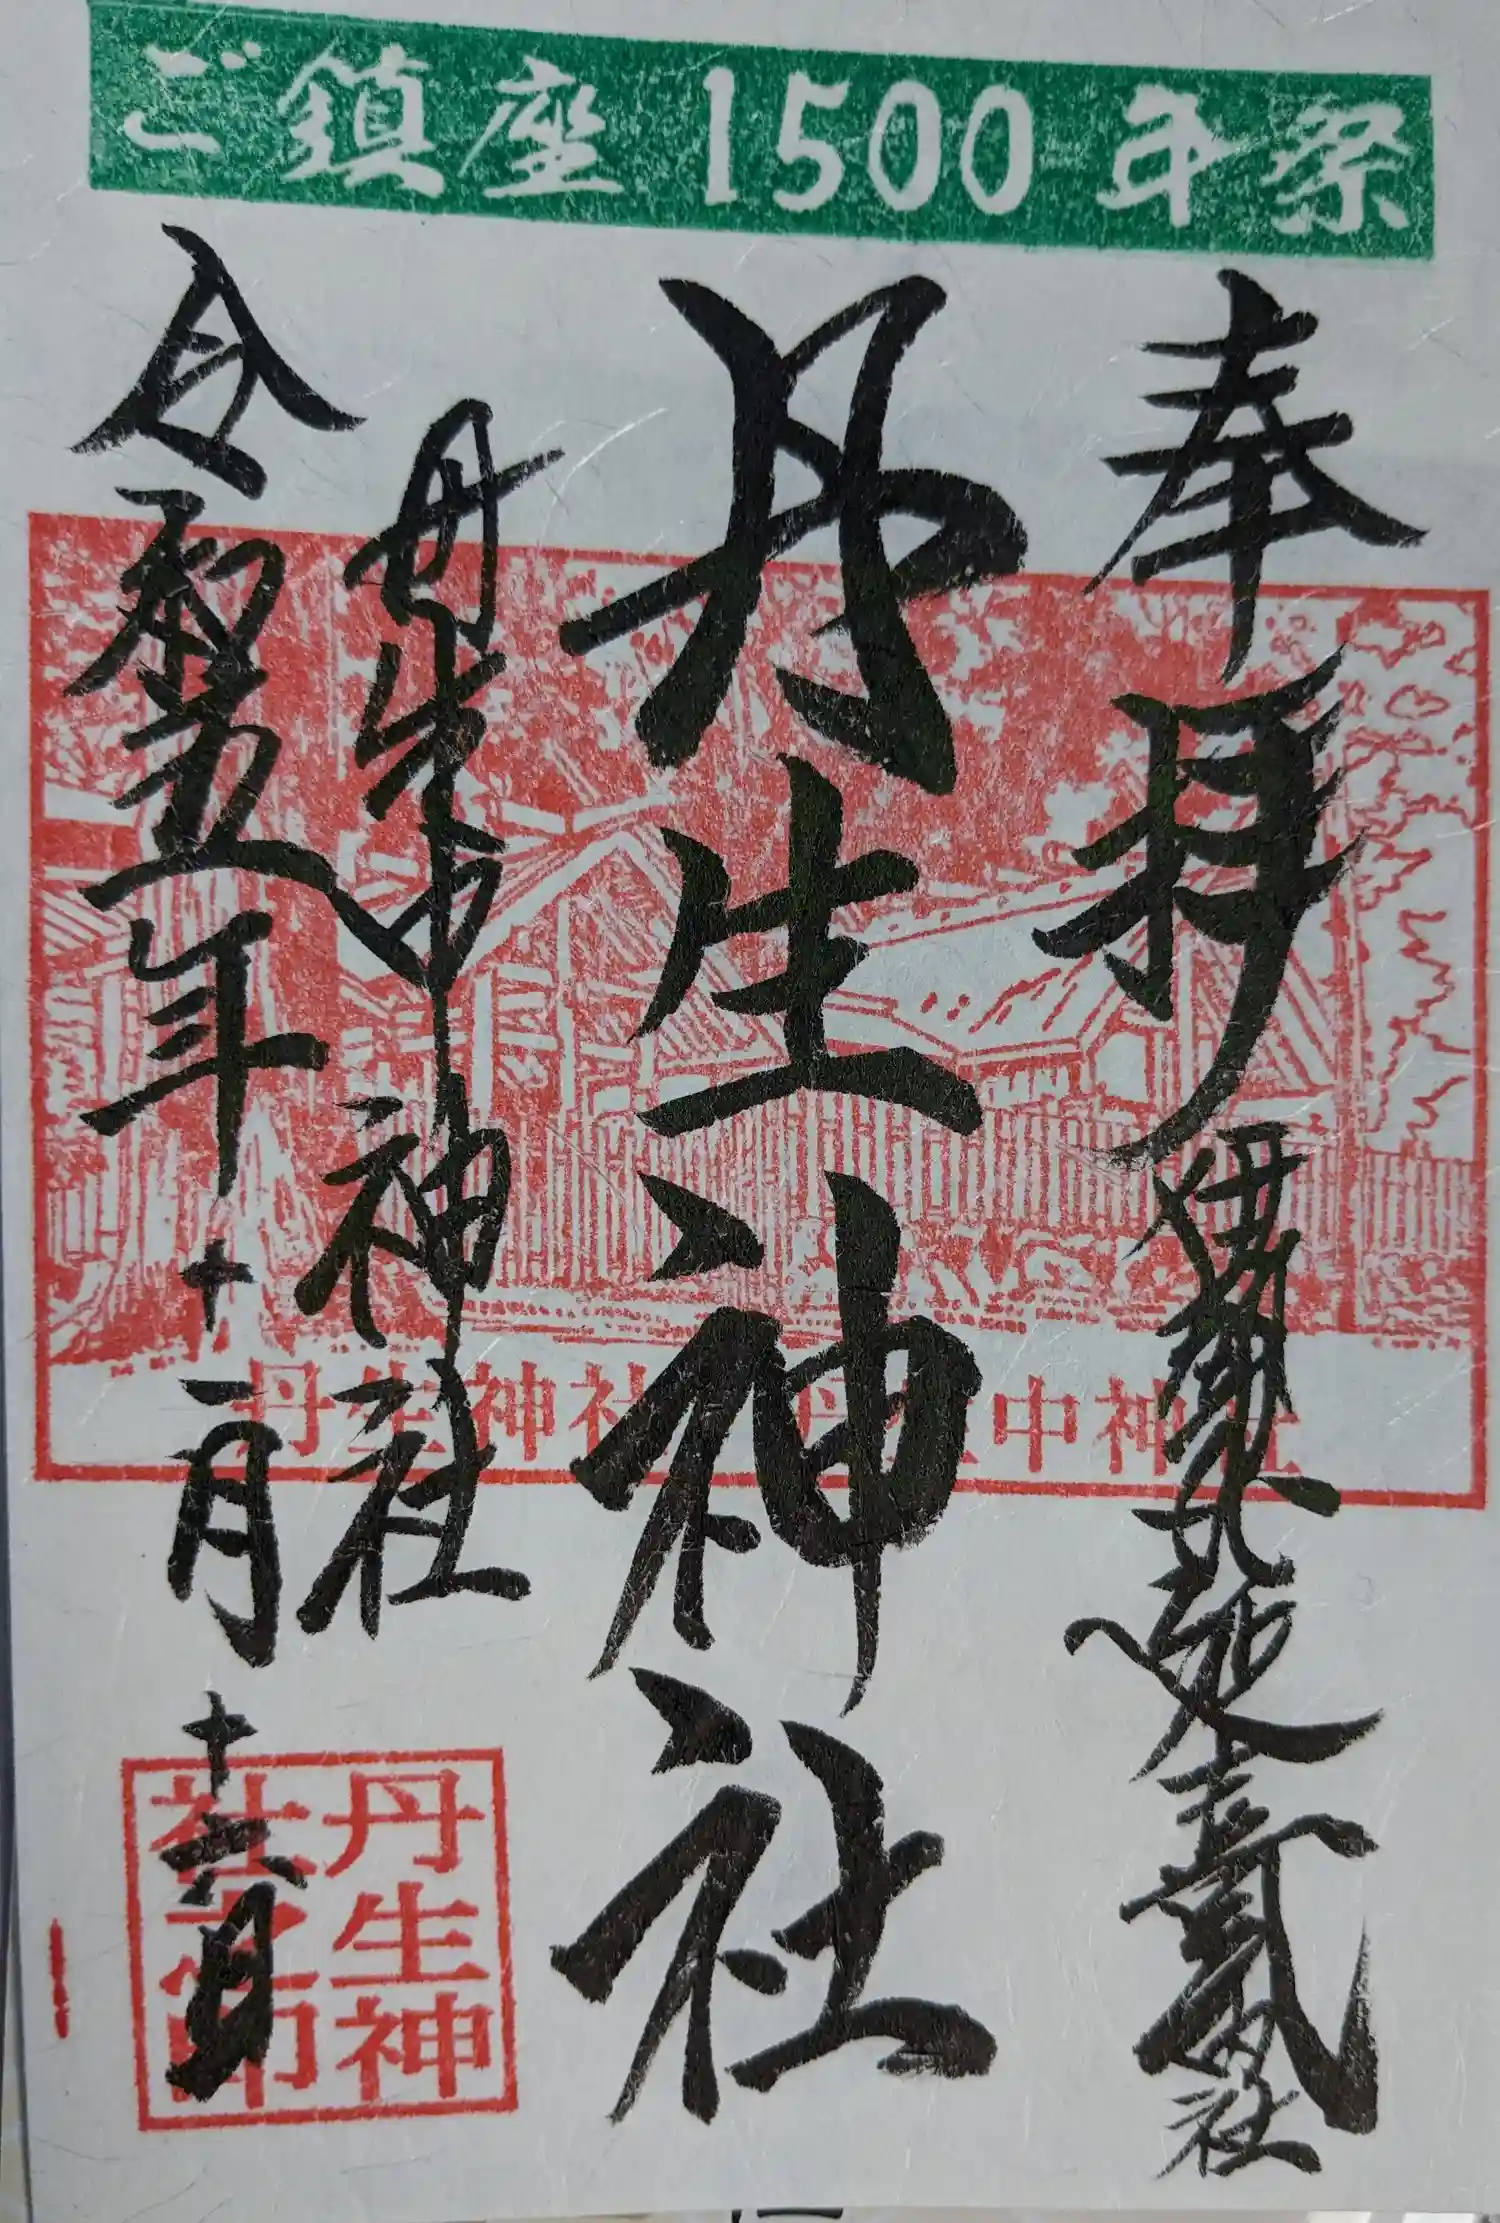 ご鎮座1500年祭
奉拝 伊勢國延喜式内社
丹生神社
丹生中神社
令和五年十一月十六日
丹生神社 丹生中神社
丹生神
社之印